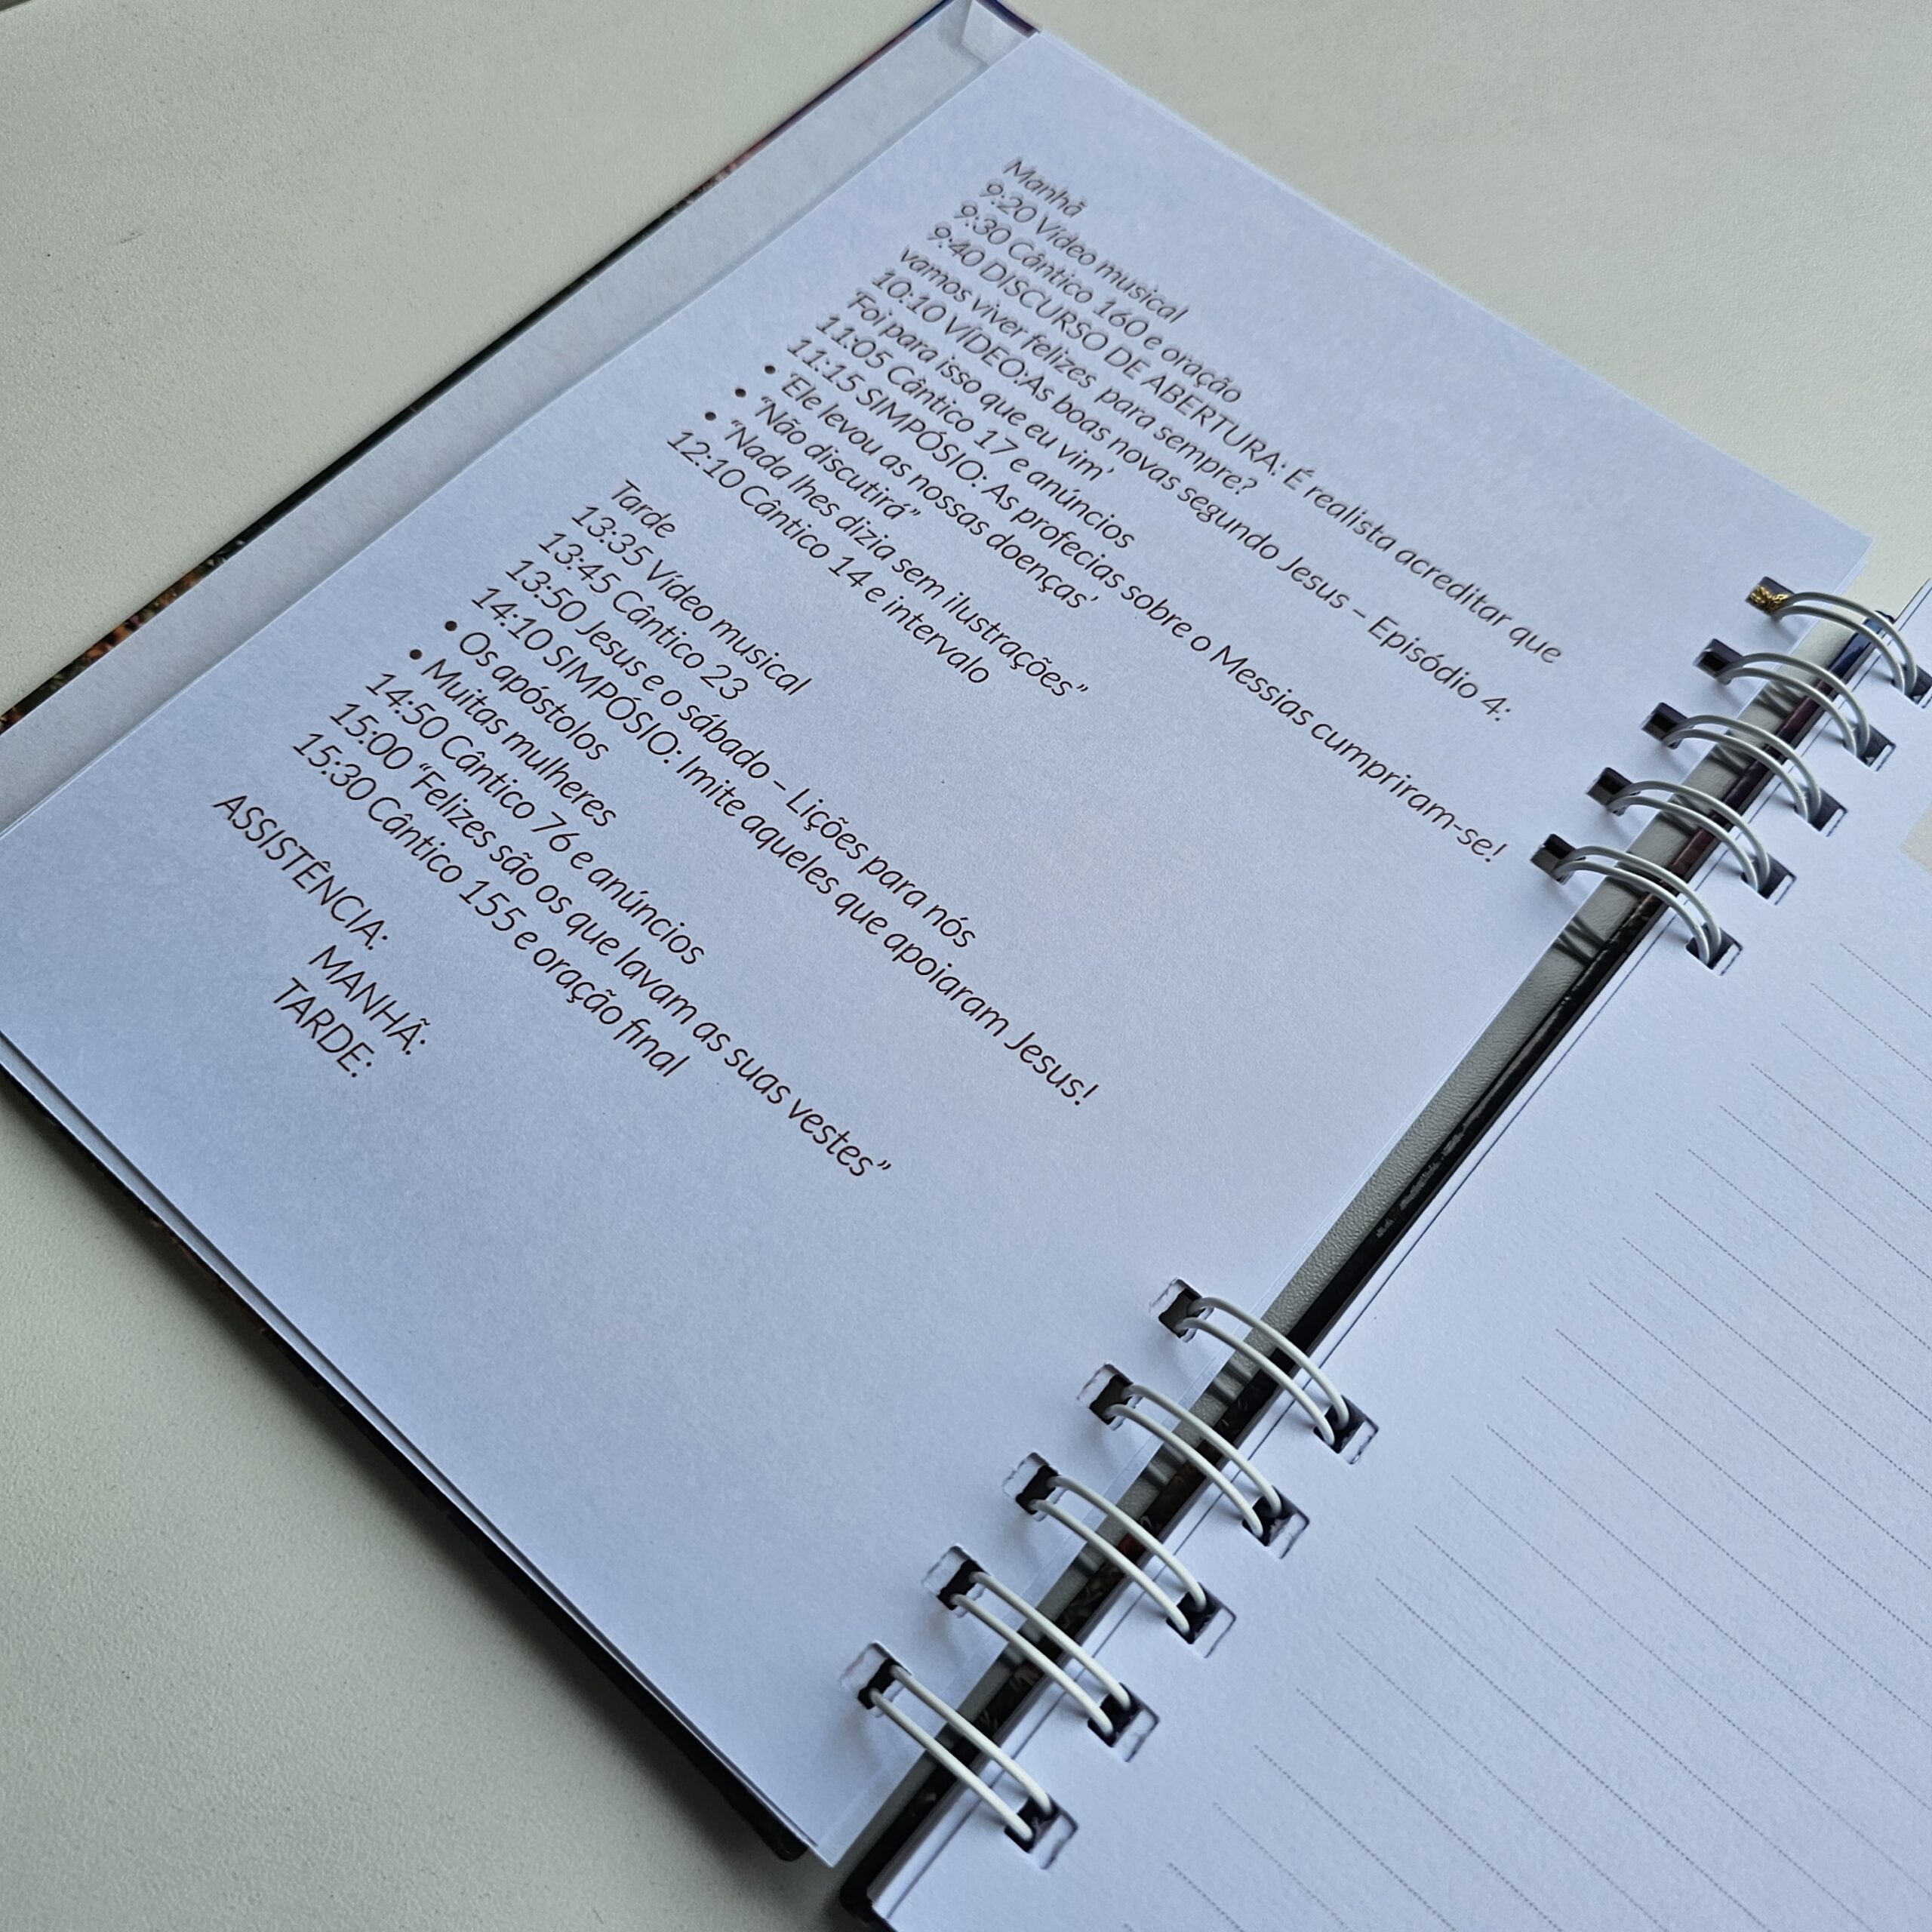 Manhã
9:20 Vídeo musical
9:30 Cântico 160 e oração
9:40 DISCURSO DE ABERTURA: É realista acreditar que
vamos viver felizes para sempre?
10:10 VÍDEO:As boas novas segundo Jesus – Episódio 4:
'Foi para isso que eu vim'
11:05 Cântico 17 e anúncios
11:15 SIMPÓSIO: As profecias sobre o Messias cumpriram-se!
• 'Ele levou as nossas doenças'
• "Não discutirá"
• "Nada lhes dizia sem ilustrações"
12:10 Cântico 14 e intervalo
Tarde
13:35 Vídeo musical
13:45 Cântico 23
13:50 Jesus e o sábado – Lições para nós
14:10 SIMPÓSIO: Imite aqueles que apoiaram Jesus!
• Os apóstolos
• Muitas mulheres
14:50 Cântico 76 e anúncios
15:00 "Felizes são os que lavam as suas vestes"
15:30 Cântico 155 e oração final
ASSISTÊNCIA:
MANHÃ:
TARDE: